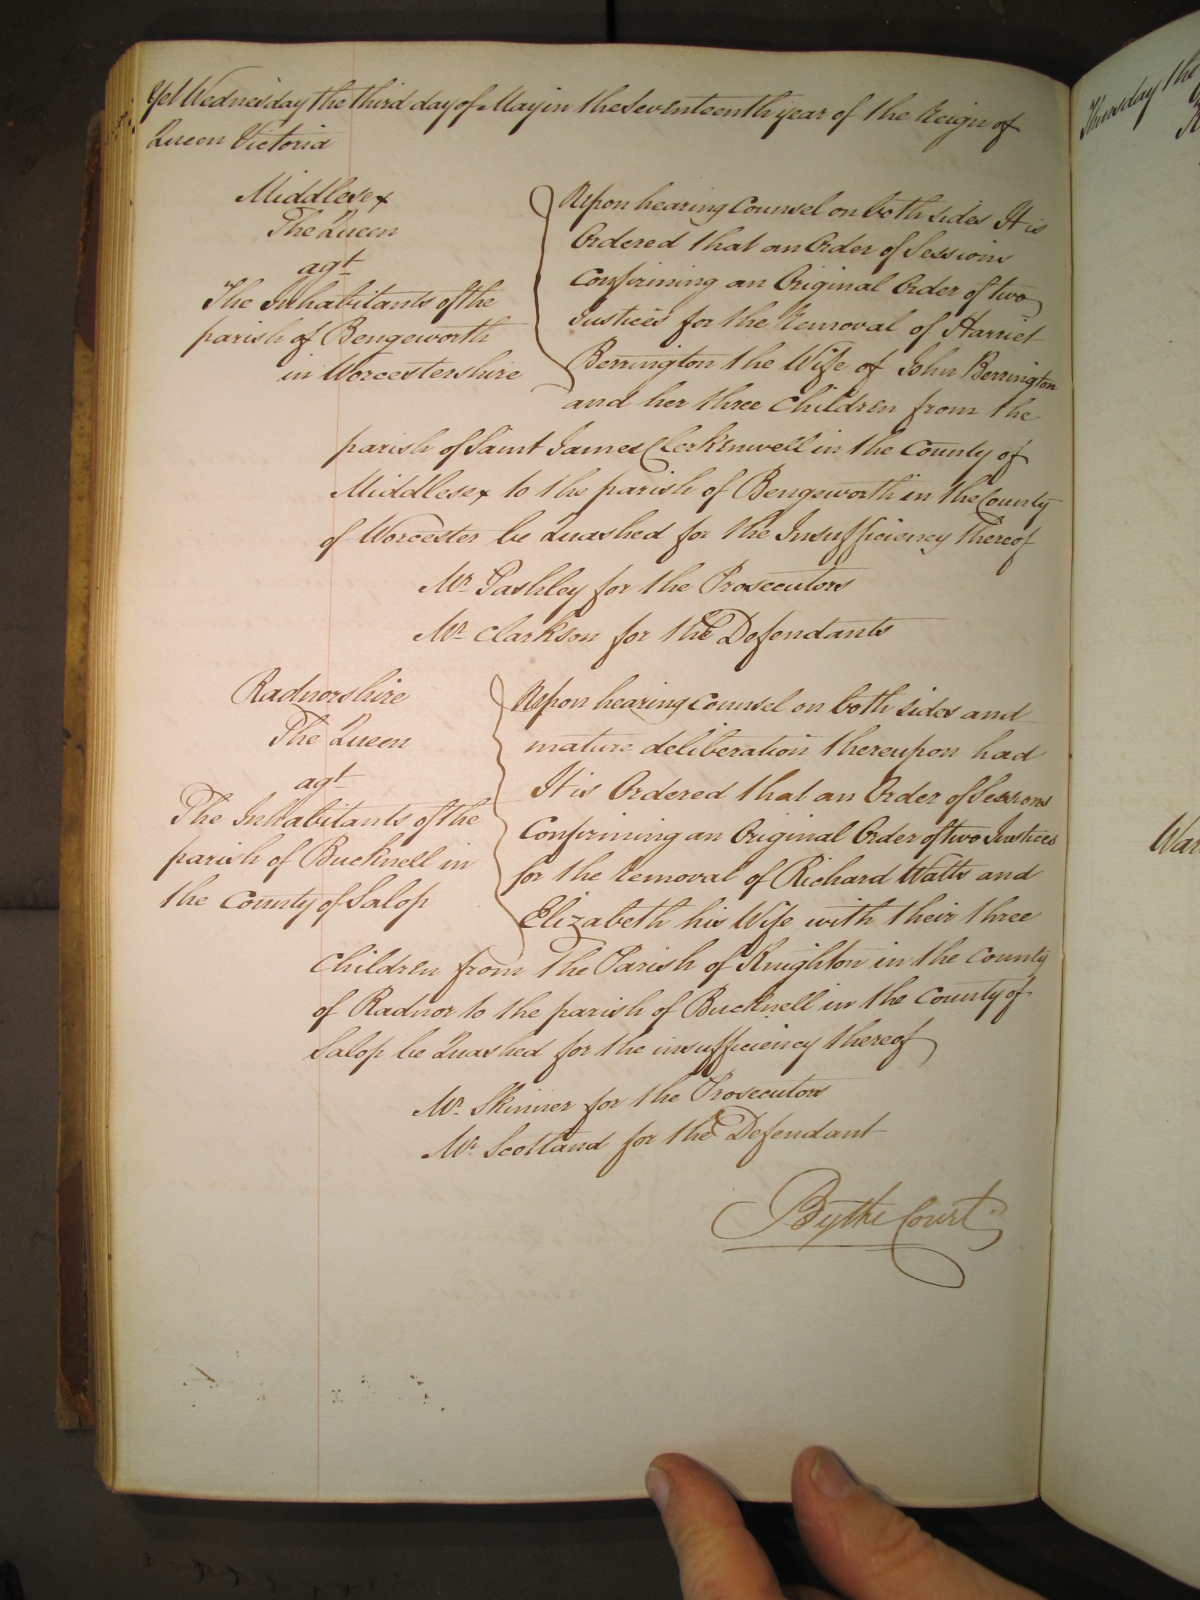 Yet Wednesday the third day of May in the Seventeenth year of the Reign of
Queen Victoria
Middlesex
The Queen
agt
The Inhabitants of the
parish of Bengeworth
in Worcestershire
Upon hearing Counsel on both sides It is
Ordered that an Order of Sessions
Confirming an Original Order of two
Justices for the Removal of Harriet
Berrington the Wife of John Berrington
and her three Children from the
parish of Saint James Clerkenwell in the County of
Middlesex to the parish of Bengeworth in the County
of Worcester be Quashed for the Insufficiency thereof
Mr. Pashley for the Prosecutors
Mr. Clarkson for the Defendants
Radnorshire
The Queen
agt
The Inhabitants of the
parish of Bucknell in
the County of Salop
Upon hearing Counsel on both sides and
mature deliberation thereupon had
It is Ordered that an Order of Sessions
Confirming an Original Order of two Justices
for the Removal of Richard Watts and
Elizabeth his Wife with their three
Children from the Parish of Knighton in the County
of Radnor to the parish of Bucknell in the County of
Salop be Quashed for the insufficiency thereof
Mr. Skinner for the Prosecutors
Mr. Scotland for the Defendant
By the Court
Thursday the